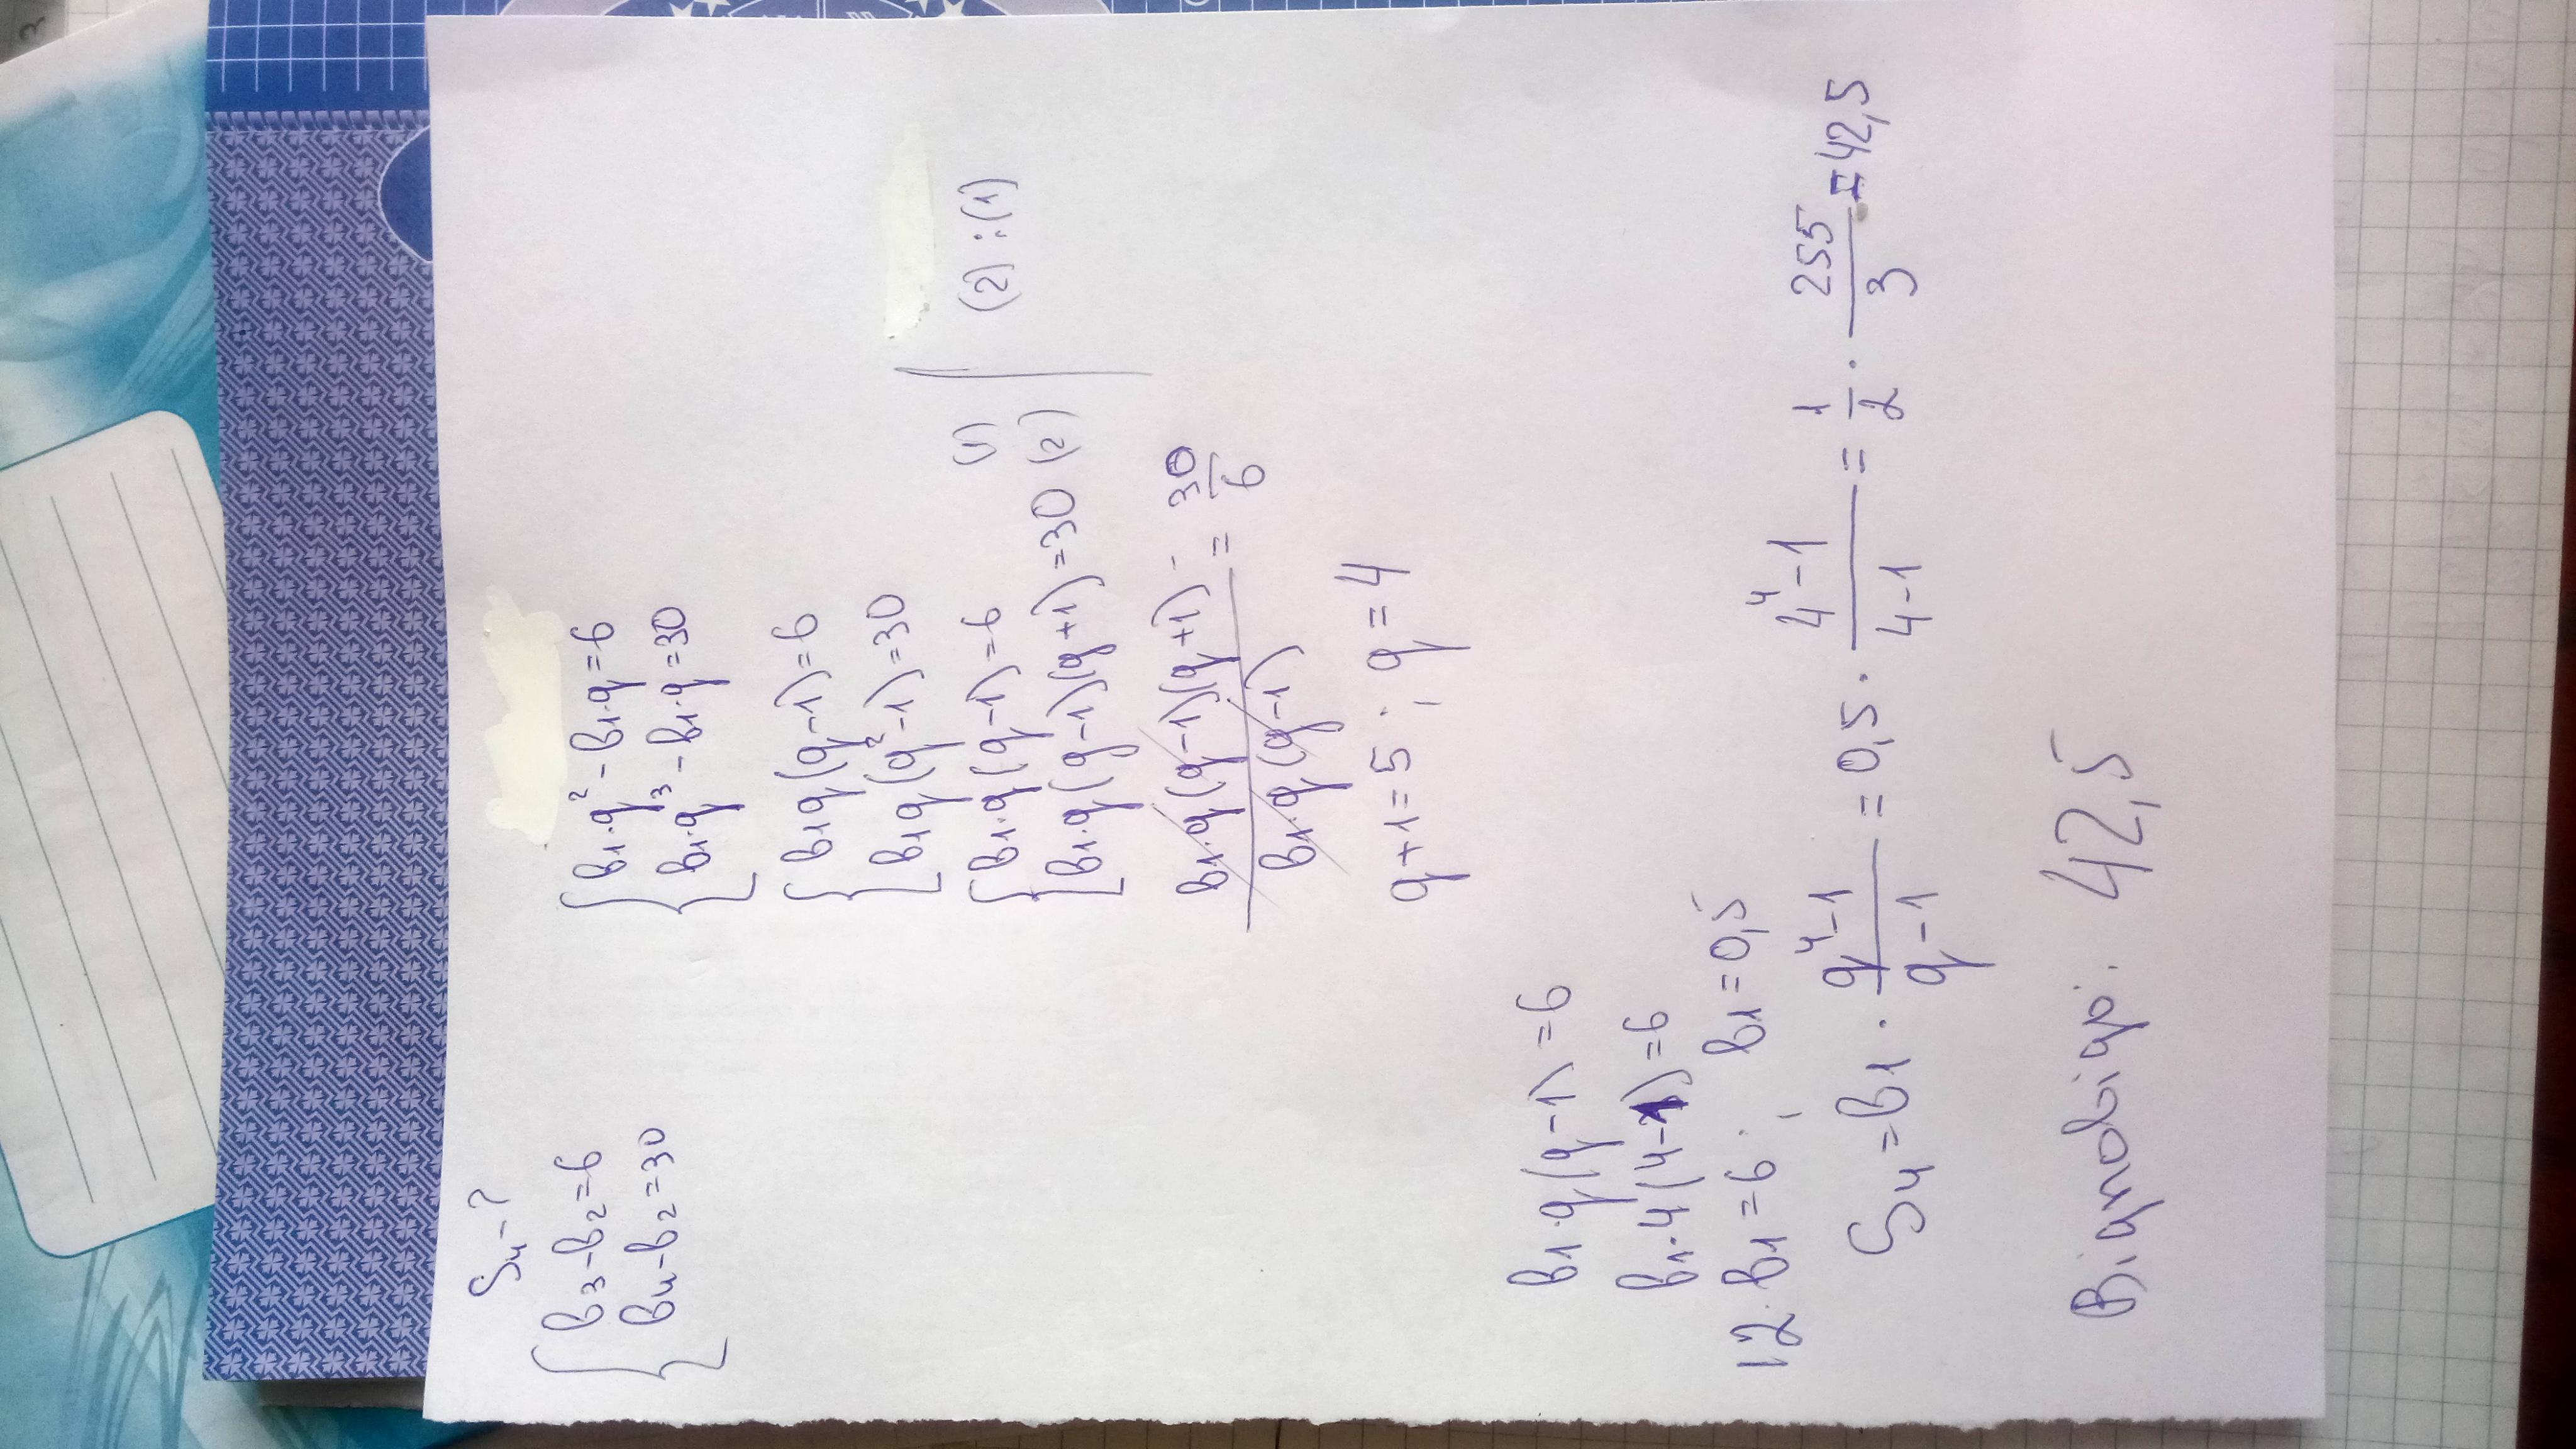 S₄-?
{ b₃-b₂=6
b₄-b₂=30
{ b₁·q²-b₁·q=6
b₁·q³-b₁·q=30
{ b₁q(q-1)=6
b₁q(q²-1)=30
{ b₁·q(q-1)=6 (1)
b₁·q(q-1)(q+1)=30 (2) | (2):(1)
b₁·q(q-1)(q+1)/b₁·q(q-1) = 30/6
q+1=5; q=4
b₁·q(q-1)=6
b₁·4(4-1)=6
12·b₁=6; b₁=0,5
S₄=b₁·(q⁴-1)/(q-1)=0,5·(4⁴-1)/(4-1)=1/2·255/3=42,5
Відповідь: 42,5